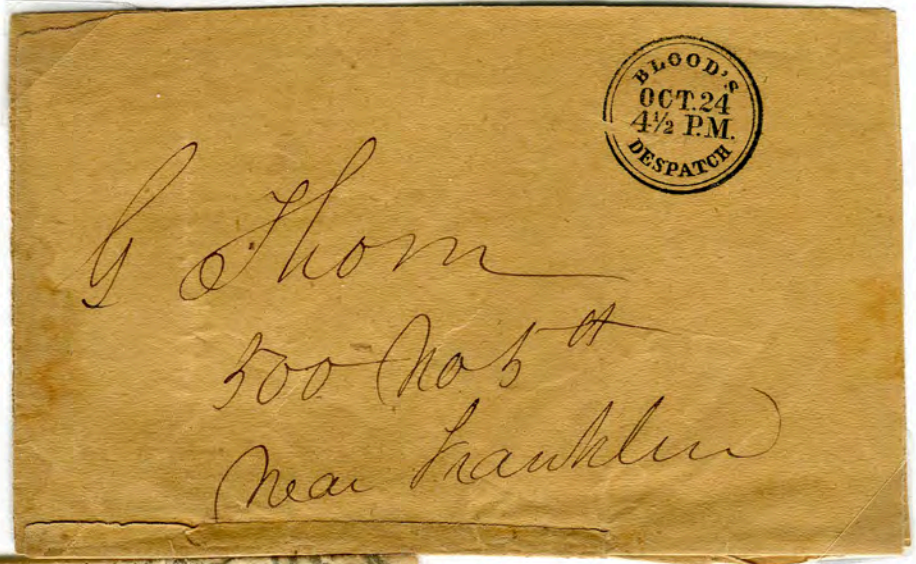 BLOOD'S
OCT. 24
4½ P.M.
DESPATCH
G Thom
500 No 5th
Near Franklin